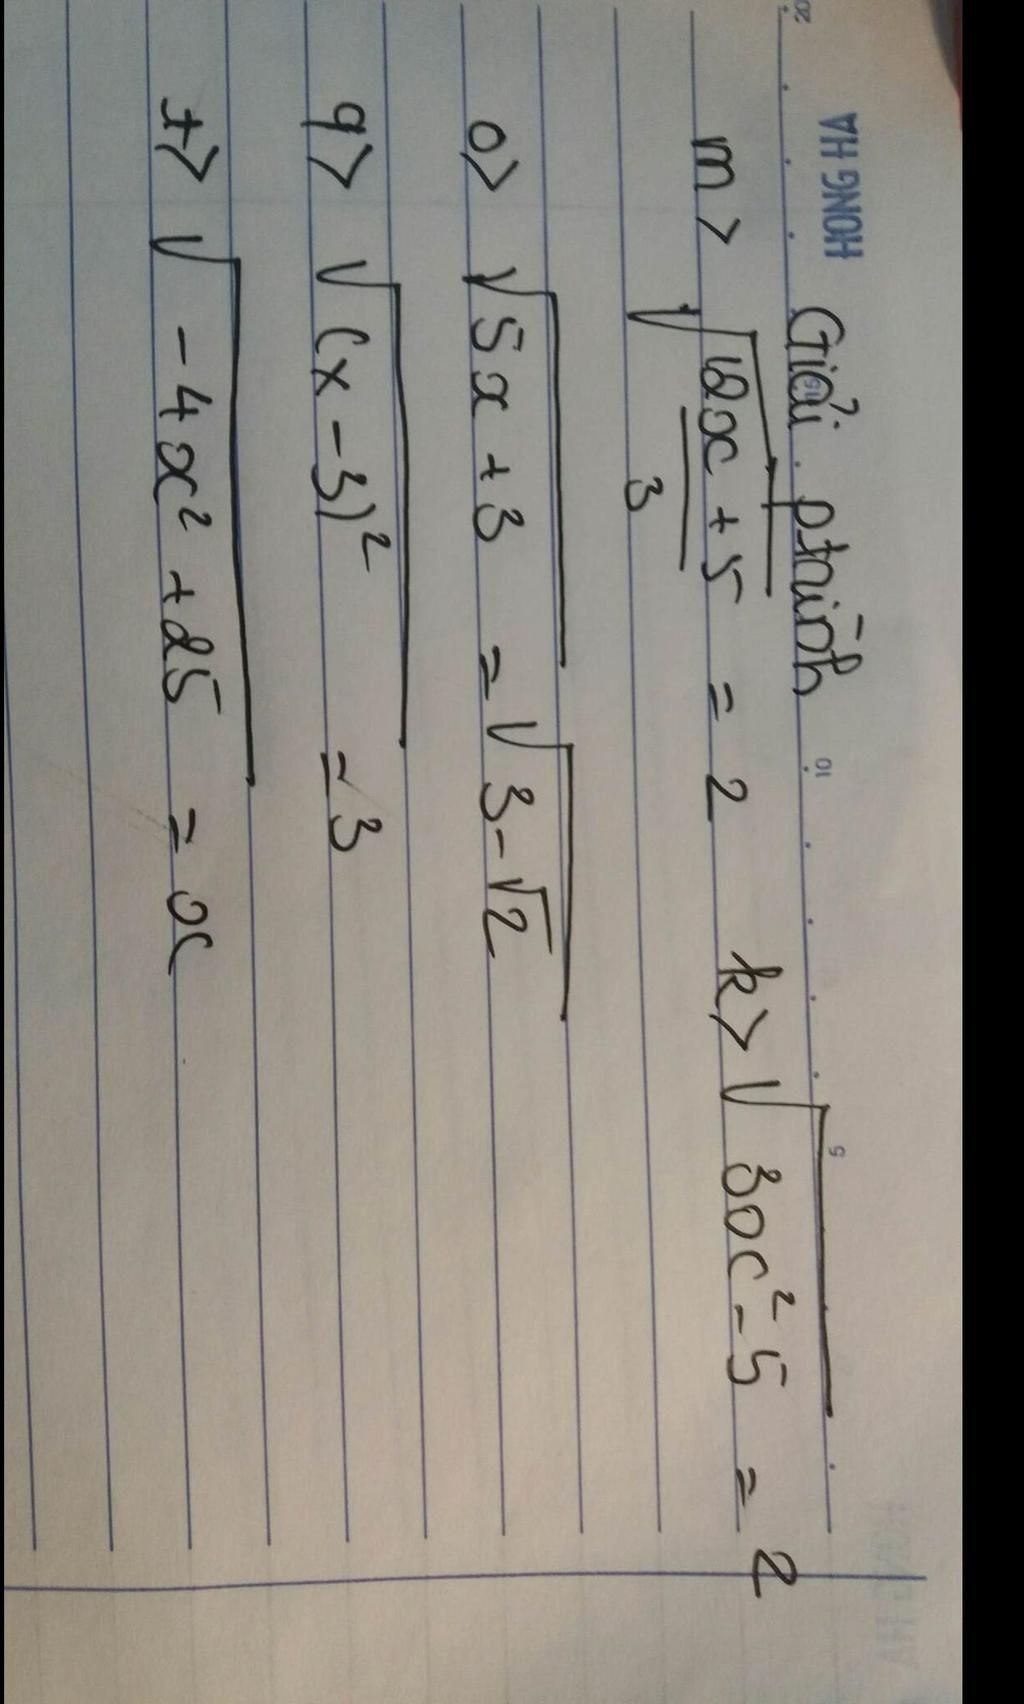 HONG HA
20 15 10 5
Giải ptrình
m> √((2x+5)/3) = 2 k> √(3x²-5) = 2
o> √(5x+3) = √(3-√2)
q> √((x-3)²) = 3
t> √(-4x²+25) = x